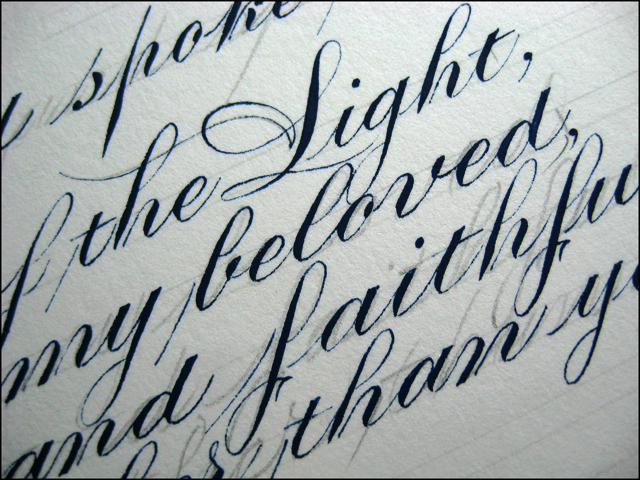 spoke
f the Light,
my beloved,
and faithfu
than yo